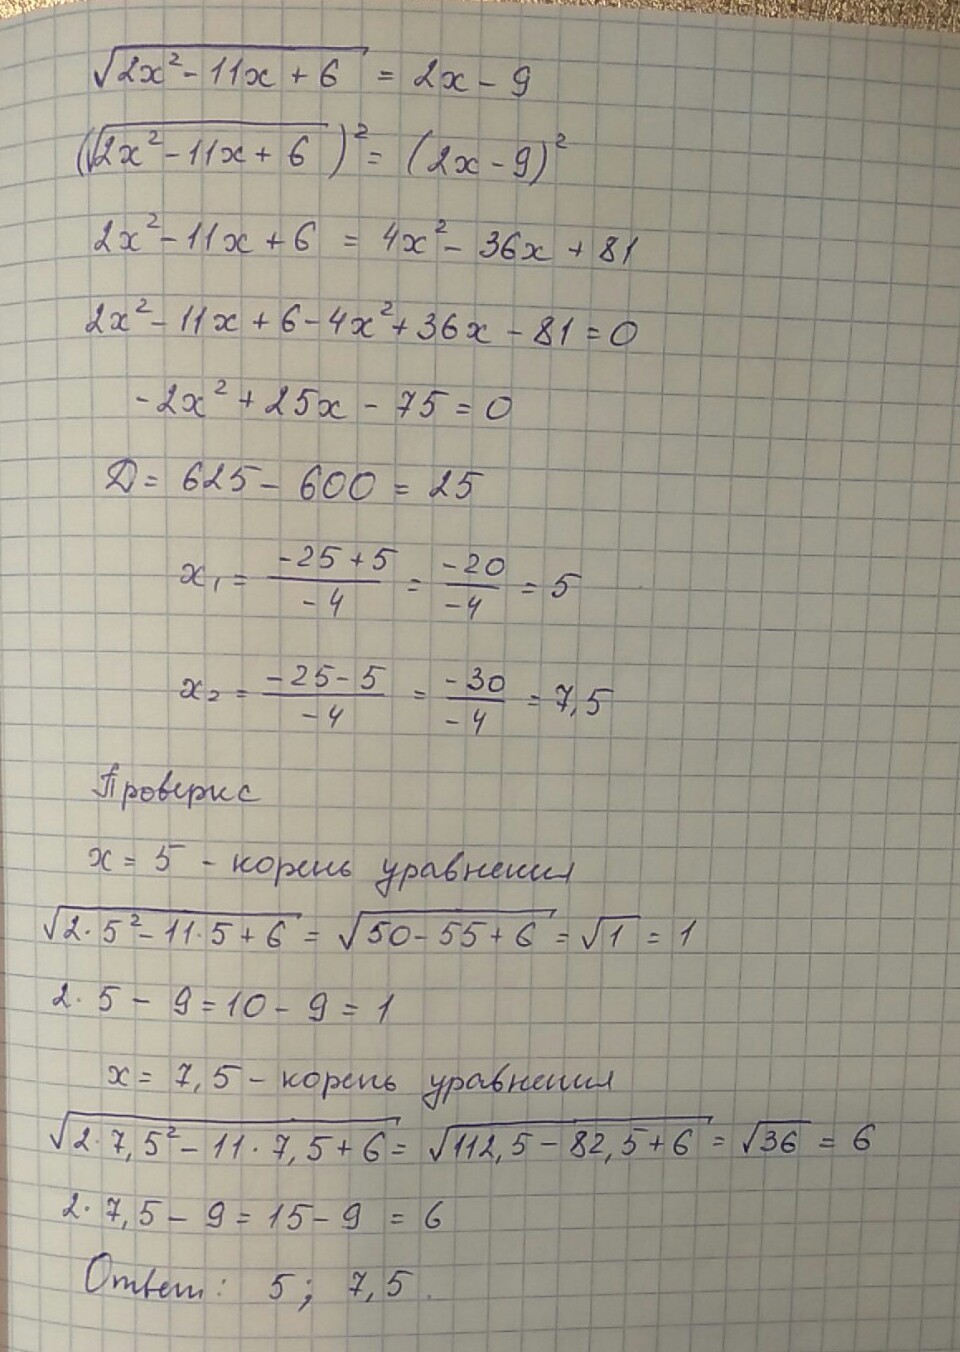 √(2x² - 11x + 6) = 2x - 9
(√(2x² - 11x + 6))² = (2x - 9)²
2x² - 11x + 6 = 4x² - 36x + 81
2x² - 11x + 6 - 4x² + 36x - 81 = 0
-2x² + 25x - 75 = 0
Д = 625 - 600 = 25
x₁ = (-25 + 5)/(-4) = (-20)/(-4) = 5
x₂ = (-25 - 5)/(-4) = (-30)/(-4) = 7,5
x = 5 - корень уравнения
√(2·5² - 11·5 + 6) = √(50 - 55 + 6) = √1 = 1
2·5 - 9 = 10 - 9 = 1
x = 7,5 - корень уравнения
√(2·7,5² - 11·7,5 + 6) = √(112,5 - 82,5 + 6) = √36 = 6
2·7,5 - 9 = 15 - 9 = 6
Ответ: 5; 7,5.